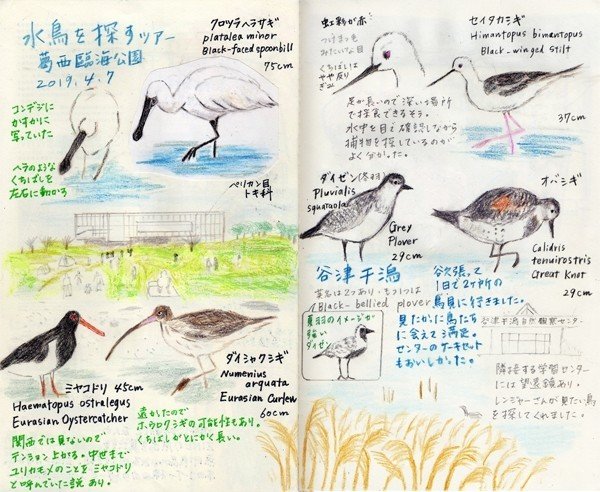 水鳥を探すツアー
葛西臨海公園
2019.4.7
クロツラヘラサギ
platalea minor
Black-faced spoonbill
75cm
コンデジに
かすかに
写っていた
ヘラのような
くちばしを
左右に動かす
ペリカン目
トキ科
ミヤコドリ 45cm
Haematopus ostralegus
Eurasian Oystercatcher
関西では見ないので
テンション上がる。中世まで
ユリカモメのことを ミヤコドリ
と呼んでいた説 あり。
ダイシャクシギ
Numenius
arquata
Eurasian Curlew
60cm
遠かったので
ホウロクシギの可能性もあり。
くちばしがとにかく長い。
虹彩が赤
つけまつ毛
みたいな目
くちばしは
やや反り
セイタカシギ
Himantopus bimantopus
Black-winged stilt
37cm
足が長いので深い場所
で採食できるそう。
水中を目で確認しながら
捕物を探しているのが
よく分かった。
ダイゼン(冬羽)
Pluvialis
squaraola
Grey
Plover
29cm
オバシギ
Calidris
tenuirostris
Great Knot
29cm
谷津干潟
英名は2つあり、もう1つは
Black-bellied plover
夏羽のイメージが
強い
ダイゼン
欲張って
1日で2ヶ所の
鳥見に行きました。
見たかに鳥たち
に会えて満足。
センターのケーキセット
もおいしかった。
谷津干潟自然観察センター
隣接する学習センター
には望遠鏡あり。
レンジャーさんが見たい鳥
を探してくれました。